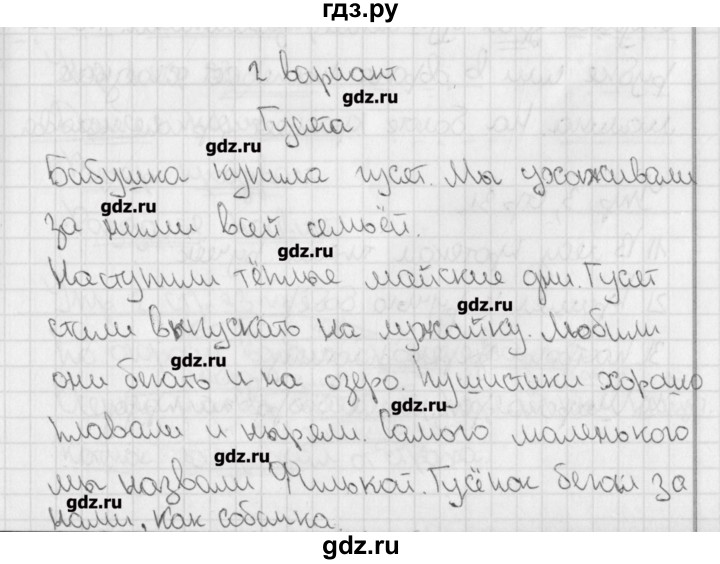 гдз.ру
2 вариант
gdz.ru
Гусята
gdz.ru
Бабушка купила гусят. Мы ухаживали
gdz.ru
за ними всей семьёй.
gdz.ru
Наступили тёплые майские дни. Гусят
gdz.ru
стали выпускать на лужайку. Любили
gdz.ru
они бегать и на озеро. Пушистики хорошо
gdz.ru
плавали и ныряли. Самого маленького
gdz.ru
мы назвали Филькой. Гусёнок бегал за
gdz.ru
нами, как собачка.
gdz.ru